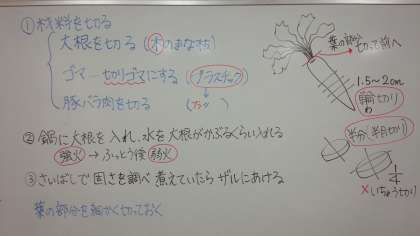 ①材料を切る
大根を切る（木のまな板）
ゴマ…切りゴマにする（プラスチック）
豚バラ肉を切る（〃）
②鍋に大根を入れ、水を大根がかぶるくらい入れる
強火→ふっとう後弱火
③さいばしで固さを調べ煮えていたらザルにあける
葉の部分を細かく切っておく
葉の部分
切って前へ
1.5～2cm
輪切り
わ
半分(半月切り)
1/4
×いちょう切り